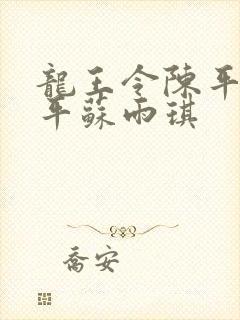 龍王令陳平
平蘇雨琪
喬安